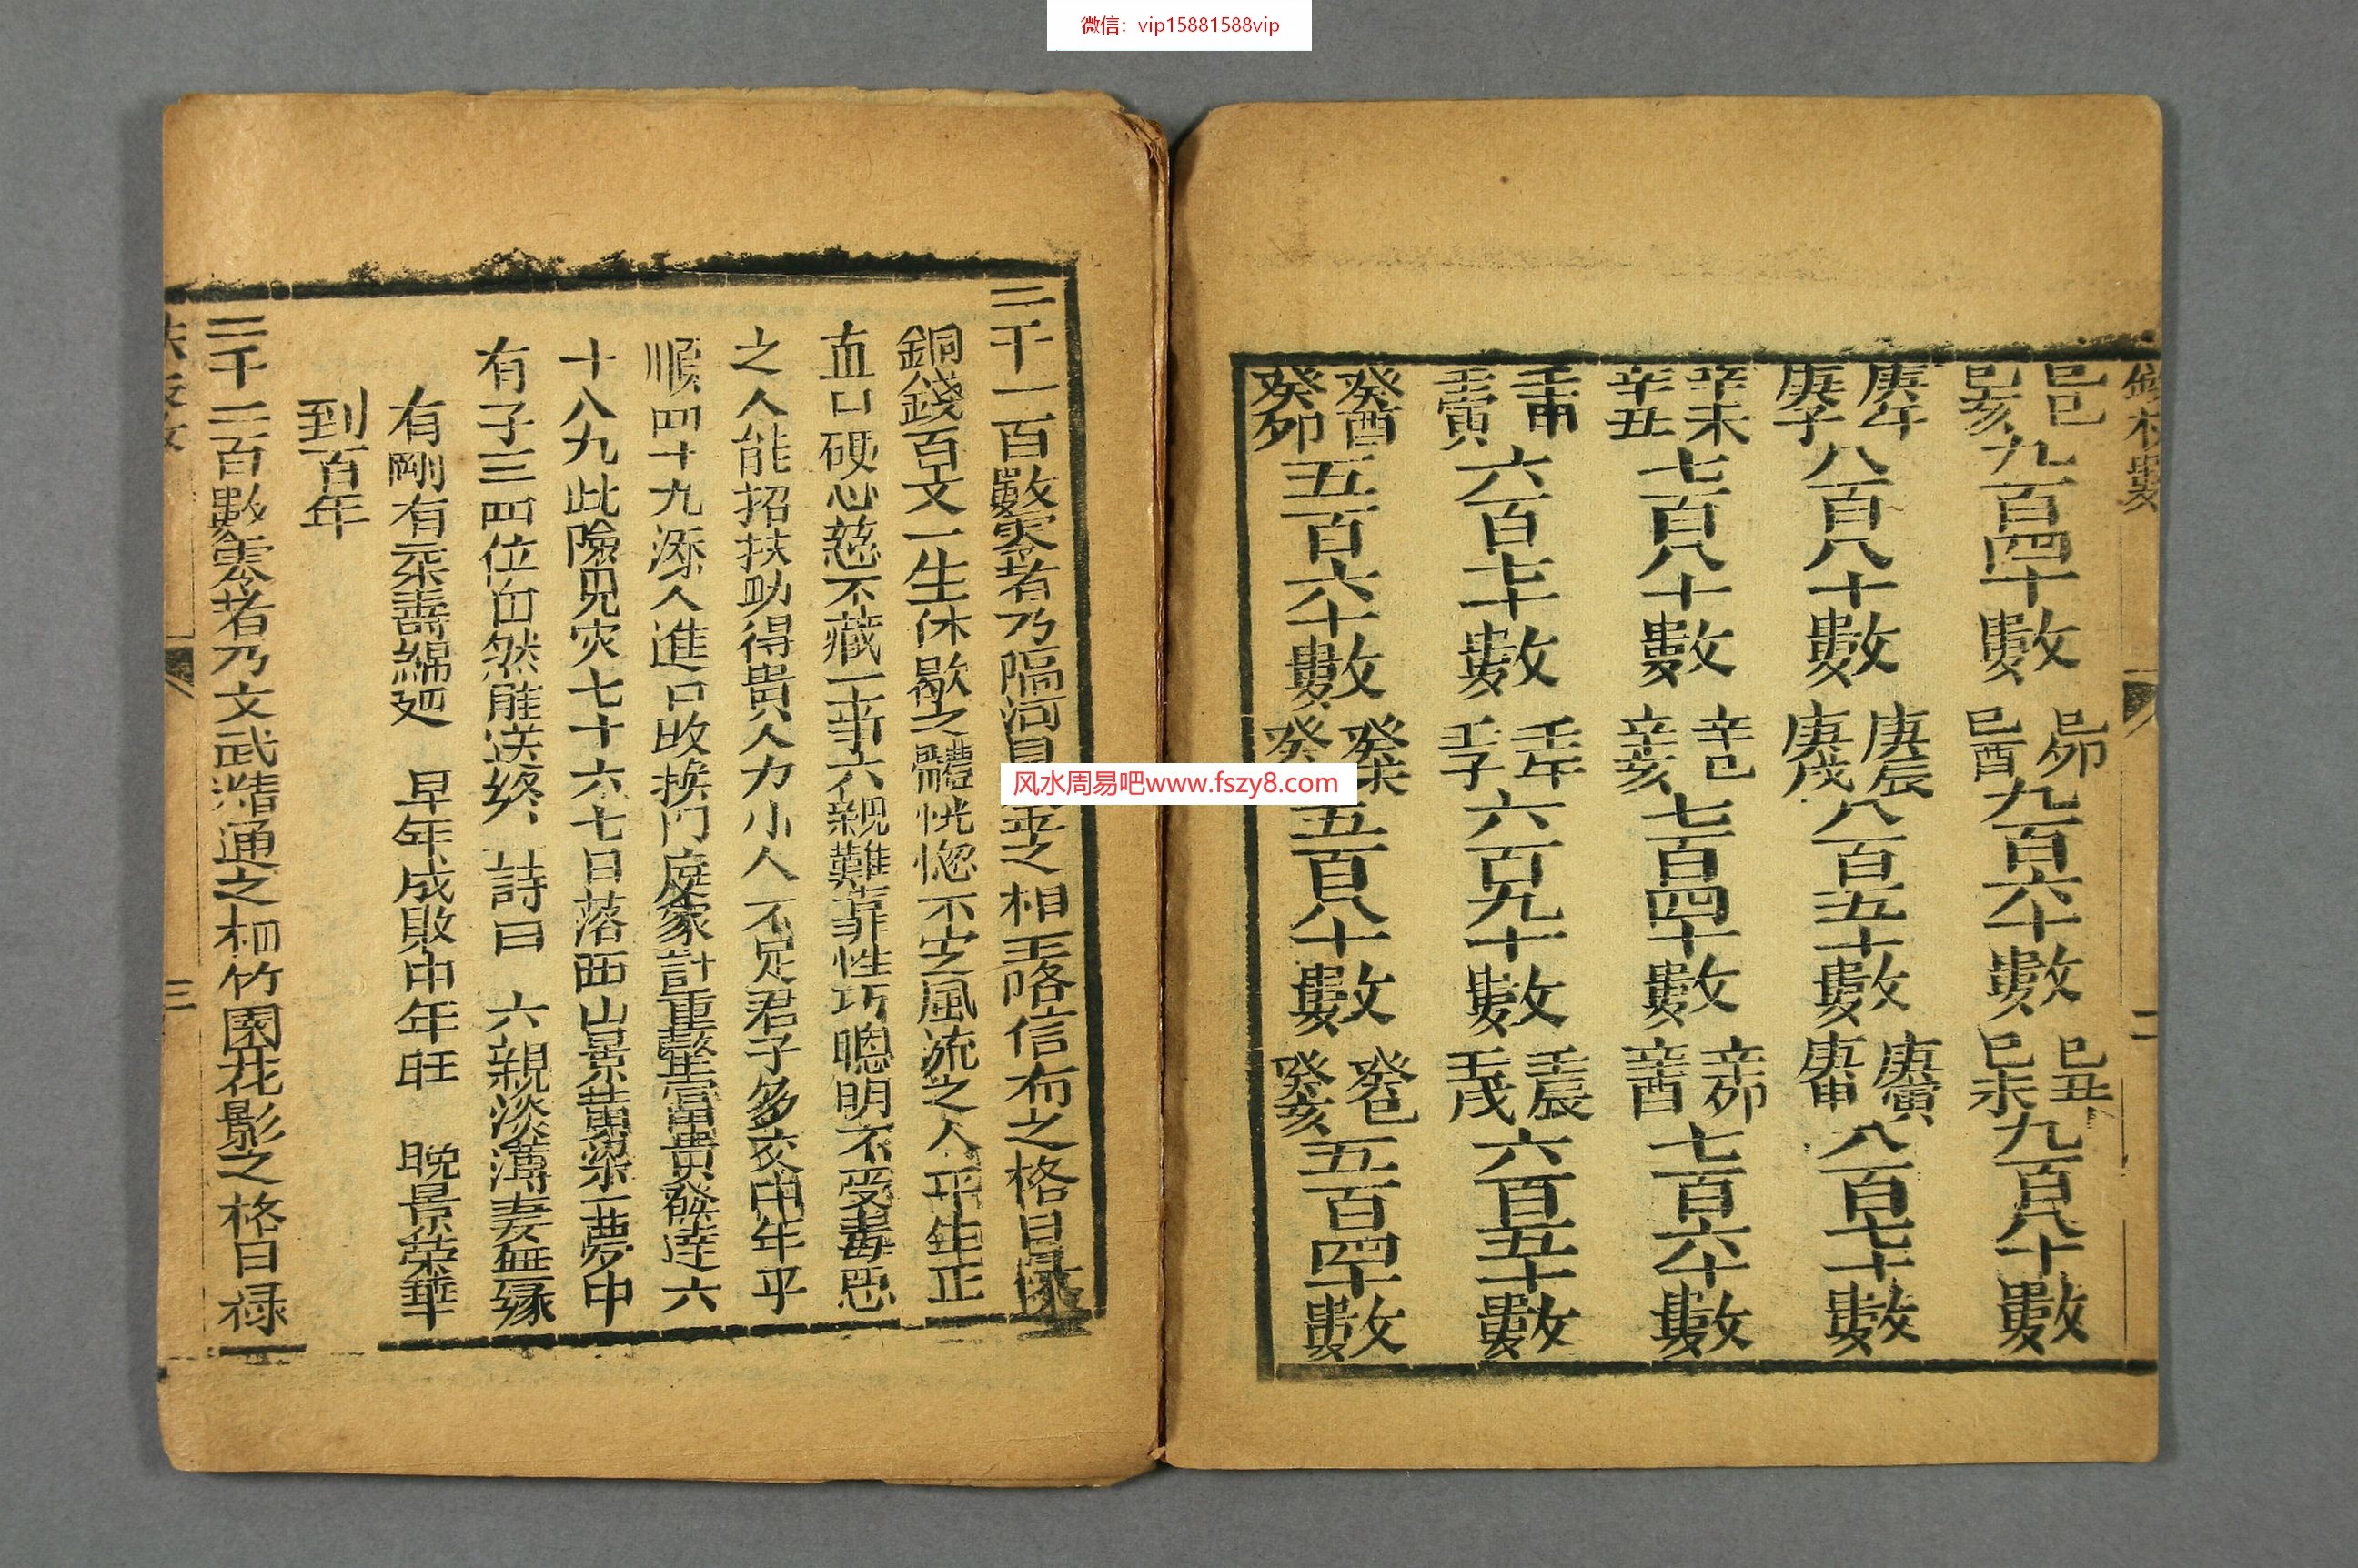 微信：vip15881588vip
數
己巳 己亥 九百四十數 己卯 己酉 九百六十數 己丑 己未 九百八十數
庚午 庚子 八百八十數 庚辰 庚戌 八百五十數 庚寅 庚申 八百七十數
辛未 辛丑 七百八十數 辛巳 辛亥 七百四十數 辛卯 辛酉 七百六十數
壬申 壬寅 六百七十數 壬午 壬子 六百九十數 壬辰 壬戌 六百五十數
癸酉 癸卯 五百六十數 癸未 癸 五百八十數 癸巳 癸亥 五百四十數
二
风水周易吧www.fszy8.com
二千一百數零者乃隔河之相玉咯信布之格日祿
銅錢百文一生休歇之體恍惚不安風流之人平生正
直口硬心慈不藏一事六親難靠性巧聰明不受毒惡
之人能招扶助得貴人力小人不足君子多交中年平
順四十九添人進口改換門庭家計重整富貴發達六
十八九此險見灾七十六七日落西山景黃粱一夢中
有子三四位自然雁送終 詩曰 六親淡薄妻無緣
有剛有柔壽綿廻 早年成敗中年旺 晚景榮華
到百年
二千二百數零者乃文武精通之相竹園花影之格日禄
三